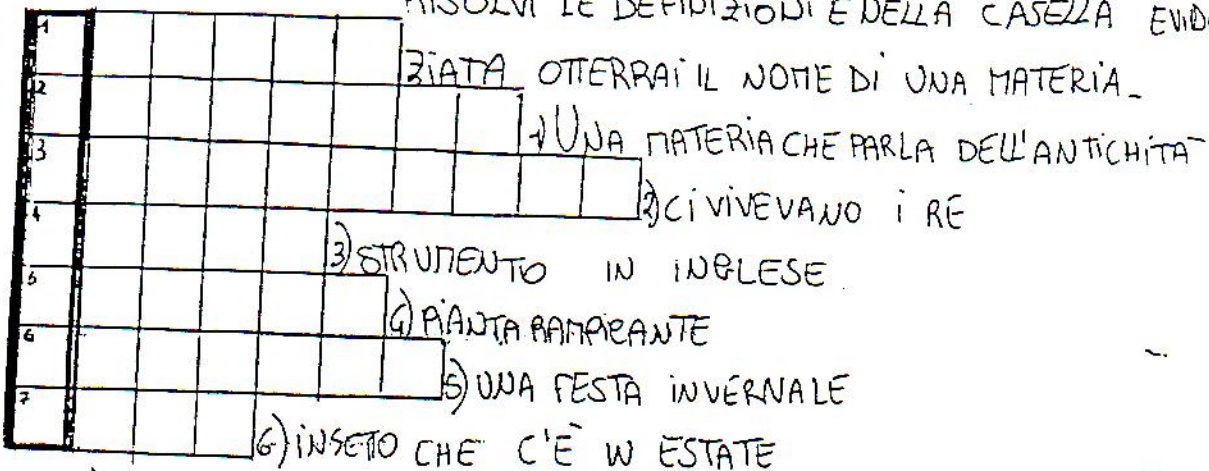 RISOLVI LE DEFINIZIONI E DELLA CASELLA EVID
1
ZIATA OTTERRAI IL NOME DI UNA MATERIA
2
1) UNA MATERIA CHE PARLA DELL'ANTICHITÀ
3
2) CI VIVEVANO I RE
4
3) STRUMENTO IN INGLESE
5
4) PIANTA RAMPICANTE
6
5) UNA FESTA INVERNALE
7
6) INSETO CHE C'È IN ESTATE